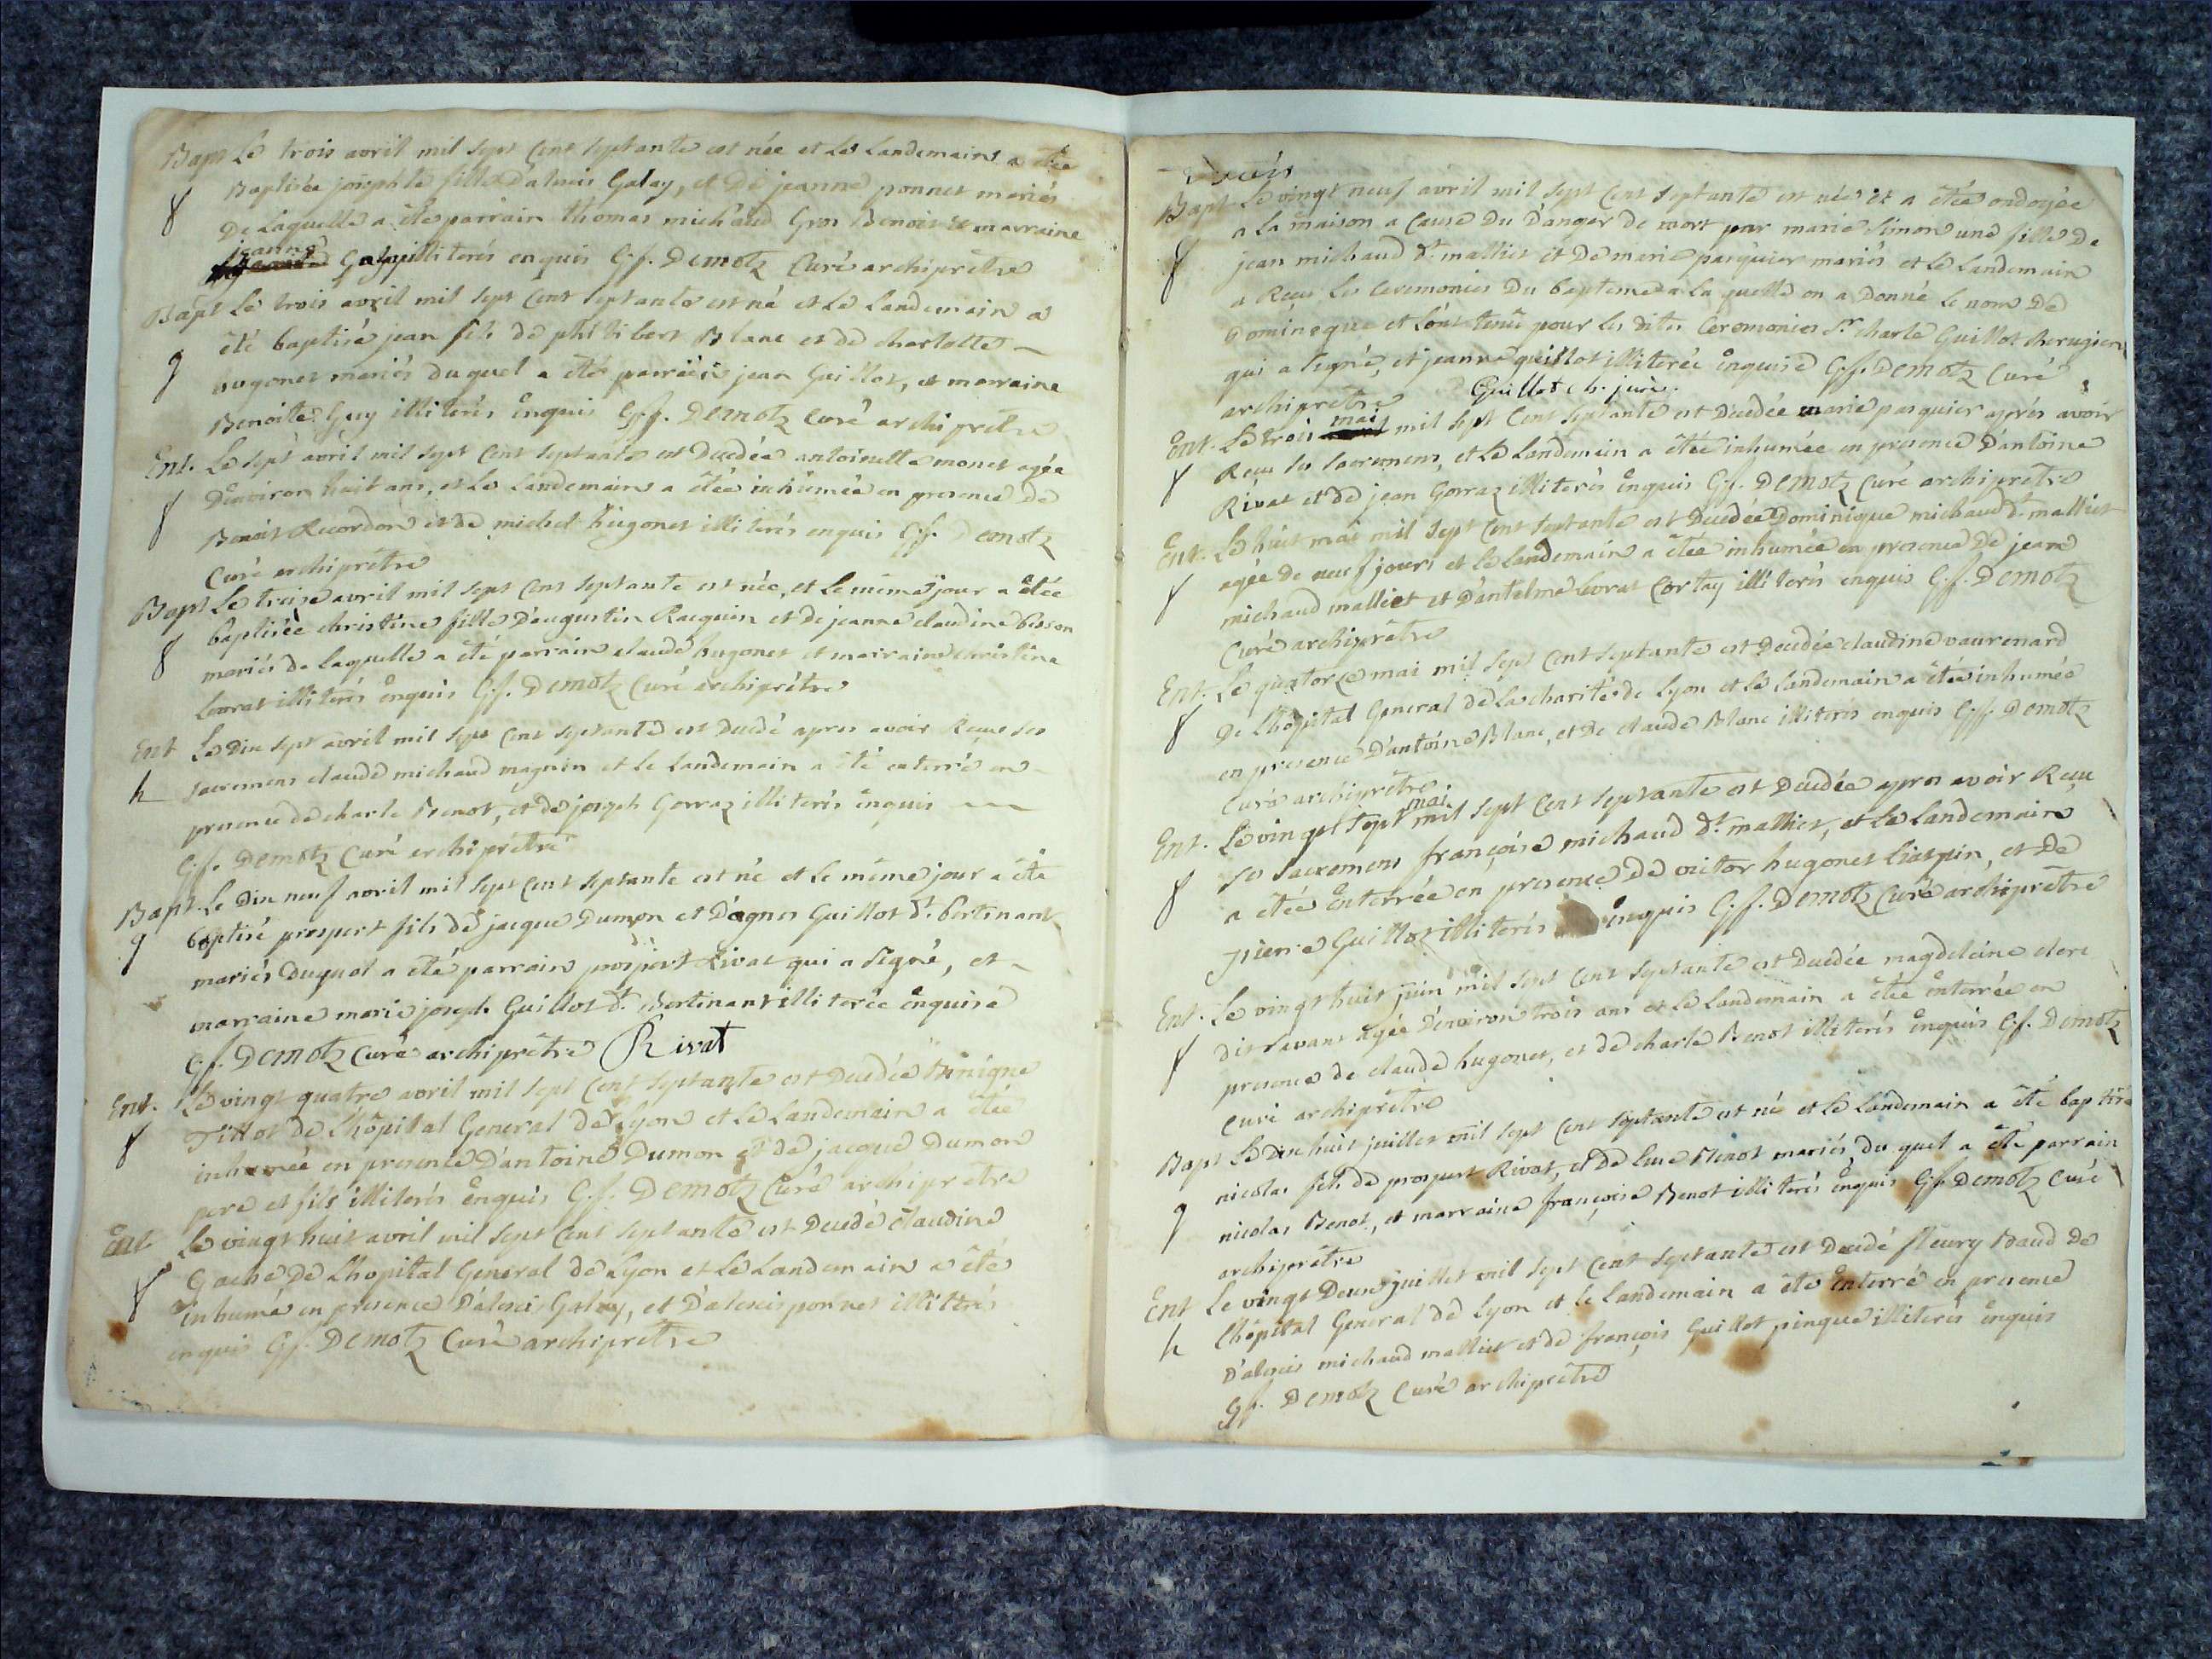 Bapt Le trois avril mil sept Cent septante est née et Le Landemains a êtée
f Baptisée josephte fille d'alexis Galay, et De jeanne ponnet mariés
De Laquelle a été parrain thomas michaud Gros Benoit et marraine
jeanne Galay illiterés enquis G.f. Demotz Curé archiprêtre
Bapt Le trois avril mil sept Cent septante est né et Le Landemain a
g été baptisé jean fils de philibert Blanc et de charlotte
hugonet mariés duquel a été parrain jean Guillot, et marraine
Benoite Guy illiterés enquis G.f. Demotz Curé archiprêtre
Ent. Le sept avril mil sept Cent septante est Decedée antoinette monet agée
f D'environ huit ans, et Le Landemains a êtée inhumée en presence De
Benoit Recordon et de michel hugonet illiterés enquis G.f. Demotz
Curé archiprêtre
Bapt Le treise avril mil sept Cent septante est née, et Le même jour a êtée
f baptisée christine fille D'augustin Racquin et de jeanne claudine bisson
mariés de Laquelle a été parrain claude hugonet et mairaine christine
Levrat illiterés enquis G.f. Demotz Curé archiprêtre
Ent Le Dix sept avril mil sept Cent septante est Decedé apres avoir Reçus ses
h sacremens claude michaud magnin et le Landemain a été enterré en
presence de charle Benot, et de joseph Gorraz illiterés enquis
G.f. Demotz Curé archiprêtre
Bapt. Le Dix neuf avril mil sept Cent septante est né et Le même jour a été
g baptisé prospert fils de jacque Dumon et D'agnes Guillot dt. bertinant
mariés Duquel a été parrains prospert Rivat qui a signé, et
marraine marie joseph Guillot dt. Bertinant illiterée enquise
G.f. Demotz Curé archiprêtre Rivat
Ent. Le vingt quatre avril mil sept Cent septante est Decedée Benigne
f Tillot de L'hôpital General de Lyon et Le Landemain a êtée
inhumée en presence D'antoine Dumon et de jacque Dumon
pere et fils illiterés enquis G.f. Demotz Curé archiprêtre
Ent Le vingt huit avril mil sept Cent septante est Decedé claudine
f Gache, De L'hopital General de Lyon et Le Landemain a été
inhumé en presence D'alexis Galay, et D'alexis ponnet illiterés
enquis G.f. Demotz Curé archiprêtre
Bapt Le vingt neuf avril mil sept Cent septante est née et a êtée ondoyée
f a La maison a Cause Du Danger De mort par marie Simon une fille De
jean michaud dt. malliet et De marie pasquier mariés et Le Landemain
a Reçu Les Ceremonies Du baptemes a La quelle on a Donné Le nom De
Domineque et L'ont tenue pour Les dites Ceremonies Sr. charle Guillot cherugien
qui a signé, et jeanne guillot illiterée enquise G.f. Demotz Curé
archiprêtre Guillot ch. juré.
Ent. Le trois mai mil sept Cent septante est Decedée marie pasquier aprés avoir
f Reçu ses sacremens, et Le Landemain a êtée inhumée en presence D'antoine
Rivat et de jean Gorraz illiterés enquis G.f. Demotz Curé archiprêtre
Ent. Le huit mai mil sept Cent septante est Decedée Dominique michaud dt. malliet
f agée de neuf jours et le Landemain a êtée inhumée en presence De jean
michaud malliet et D'antelme Levrat Cortay illiterés enquis G.f. Demotz
Curé archiprêtre
Ent. Le quatorze mai mil sept Cent septante est Decedée claudine vaurenard
f De L'hôpital General de La charité de Lyon et Le Landemain a êtée inhumée
en presence D'antoine Blanc, et De claude Blanc illiterés enquis G.f. Demotz
Curé archiprêtre
Ent. Le vingt sept mai mil sept Cent septante est Decedée apres avoir Reçu
f ses sacremens françoise michaud dt. malliet, et Le Landemain
a êtée Enterrée en presence de victor hugonet et de
pierre Guillot illiterés enquis G.f. Demotz Curé archiprêtre
Ent. Le vingt huit juin mil sept Cent septante est Decedée magdeleine clerc
f dit ravant agée D'environ trois ans et Le Landemain a êtée enterrée en
presence de claude hugonet, et de charle Benot illiterés enquis G.f. Demotz
Curé archiprêtre
Bapt Le Dix huit juillet mil sept Cent septante est né et Le Landemain a été baptisé
g nicolas fils de prospert Rivat, et de Luce Benot mariés, du quel a été parrain
nicolas Benot, et marraine françoise Benot illiterés enquis G.f. Demotz Curé
archiprêtre
Ent Le vingt Deux juillet mil sept Cent septante est Decedé fleury Baud De
h L'hôpital General de Lyon et le Landemain a été Enterré en presence
D'alexis michaud malliet et de françois Guillot pinque illiterés enquis
G.f. Demotz Curé archiprêtre